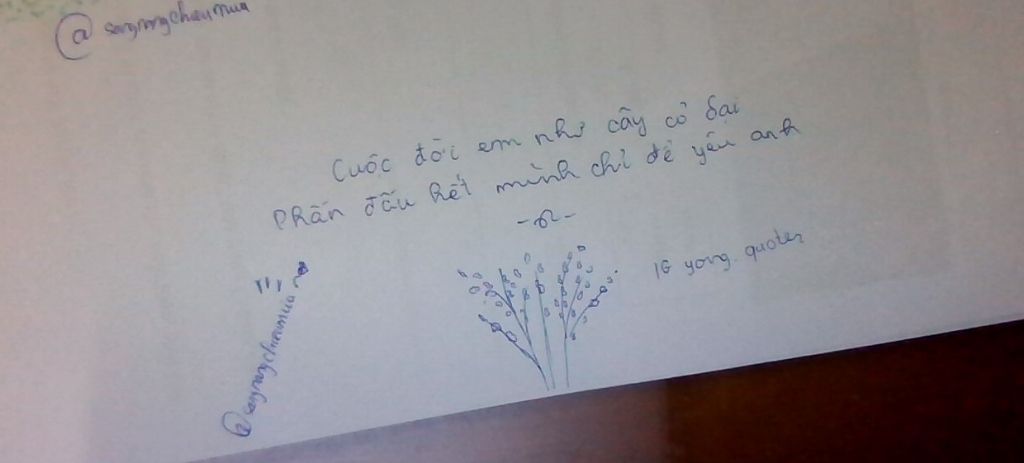 @ sangnangchieumua
Cuộc đời em như cây cỏ dại
Phấn đấu hết mình chỉ để yêu anh
IG yong.quotes
@sangnangchieumua